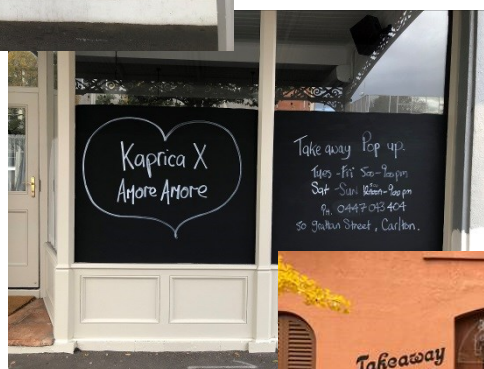 Kaprica X
Amore Amore
Take away Pop up.
Tues - Fri 5:00 - 9:00pm
Sat - Sun - 9:00pm
Ph. 0447 043 404
50 Grattan Street, Carlton.
Takeaway